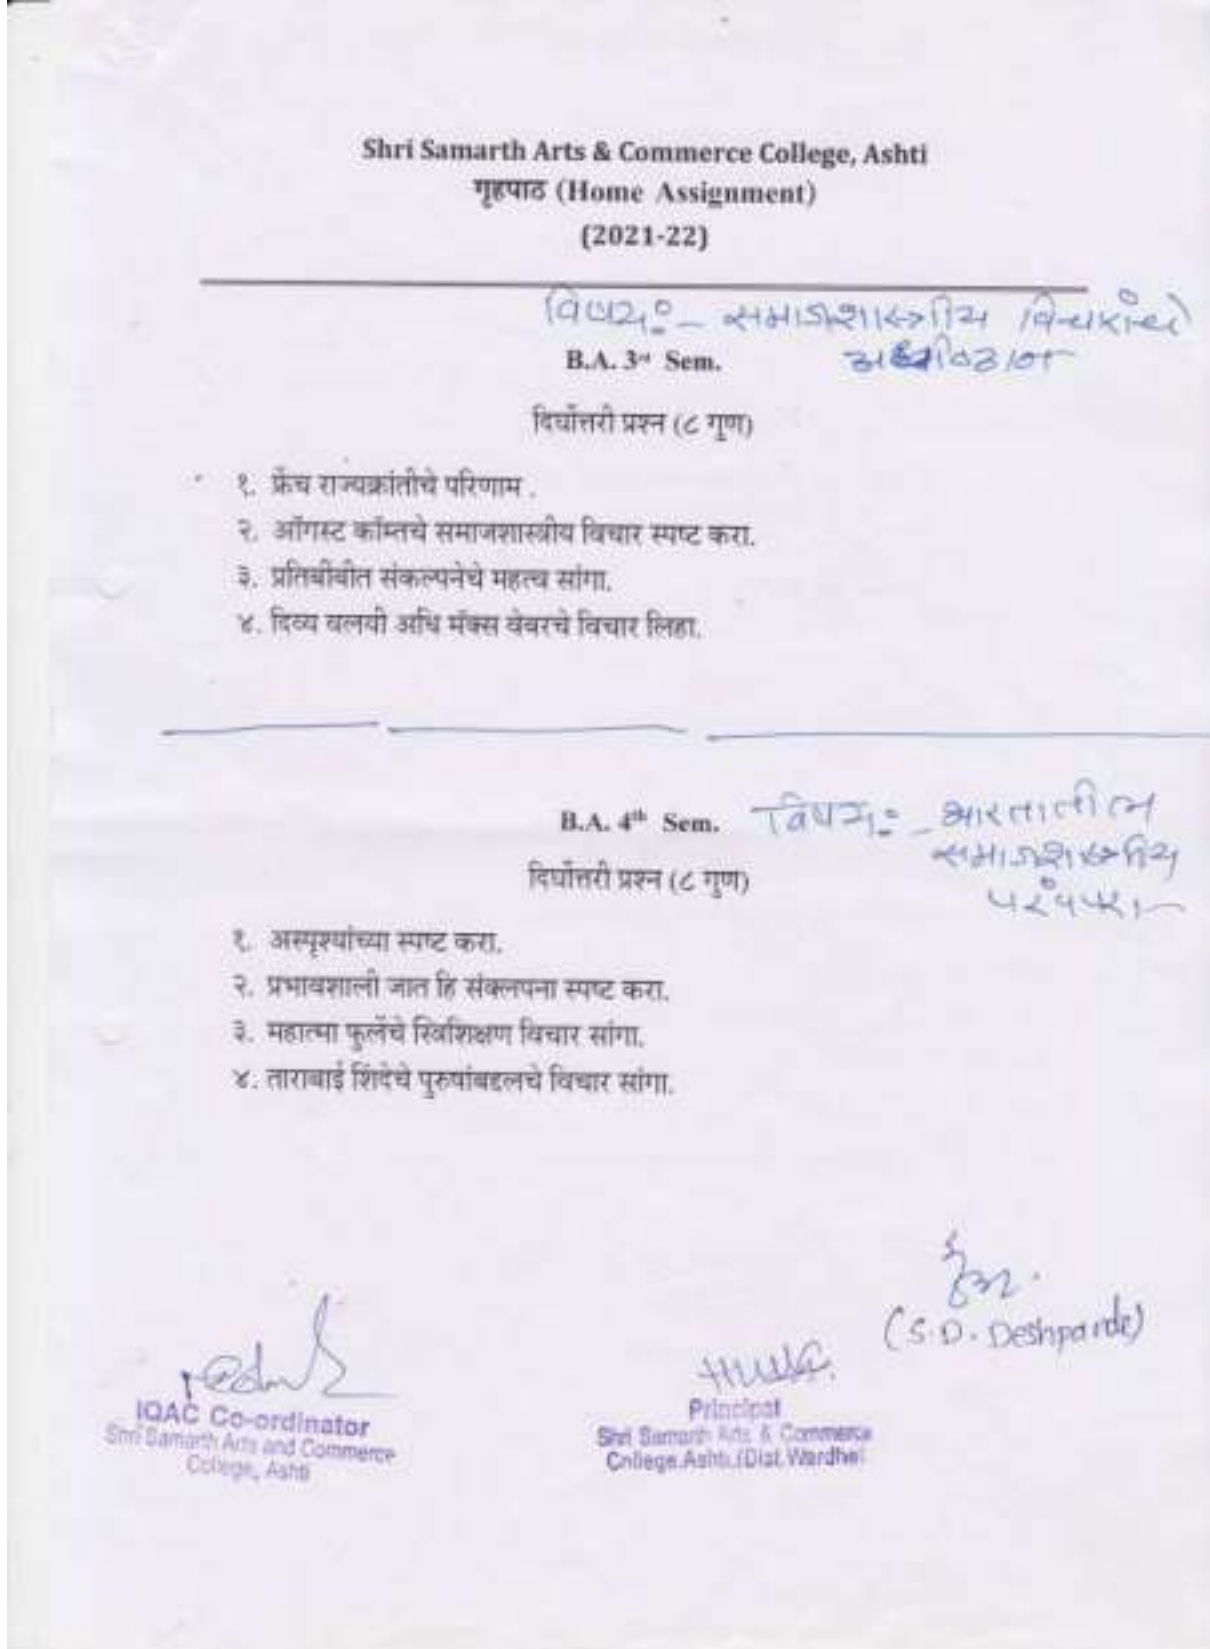 Shri Samarth Arts & Commerce College, Ashti
गृहपाठ (Home Assignment)
(2021-22)
विषय:- समाजशास्त्रीय विचारांचे
अधिष्ठान
B.A. 3rd Sem.
दिर्घोत्तरी प्रश्न (८ गुण)
१. फ्रेंच राज्यक्रांतीचे परिणाम .
२. ऑगस्ट कॉम्तचे समाजशास्त्रीय विचार स्पष्ट करा.
३. प्रतिबींबीत संकल्पनेचे महत्व सांगा.
४. दिव्य वलयी अधि मॅक्स वेबरचे विचार लिहा.
B.A. 4th Sem. विषय:- भारतातील
समाजशास्त्रीय
परंपरा
दिर्घोत्तरी प्रश्न (८ गुण)
१. अस्पृश्यांच्या स्पष्ट करा.
२. प्रभावशाली जात हि संक्लपना स्पष्ट करा.
३. महात्मा फुलेंचे स्त्रिशिक्षण विचार सांगा.
४. ताराबाई शिंदेचे पुरुषांबद्दलचे विचार सांगा.
(S.D. Deshpande)
IQAC Co-ordinator
Shri Samarth Arts and Commerce
College, Ashti
Principal
Shri Samarth Arts & Commerce
College.Ashti.(Dist.Wardha)